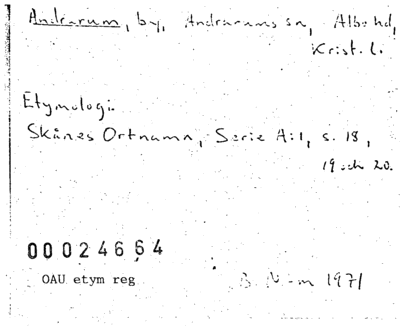 Andrarum, by, Andrarums sn, Albo hd,
Krist. l.
Etymologi:
Skånes Ortnamn, Serie A:1, s. 18,
19 och 20.
00024664
OAU etym reg
1971